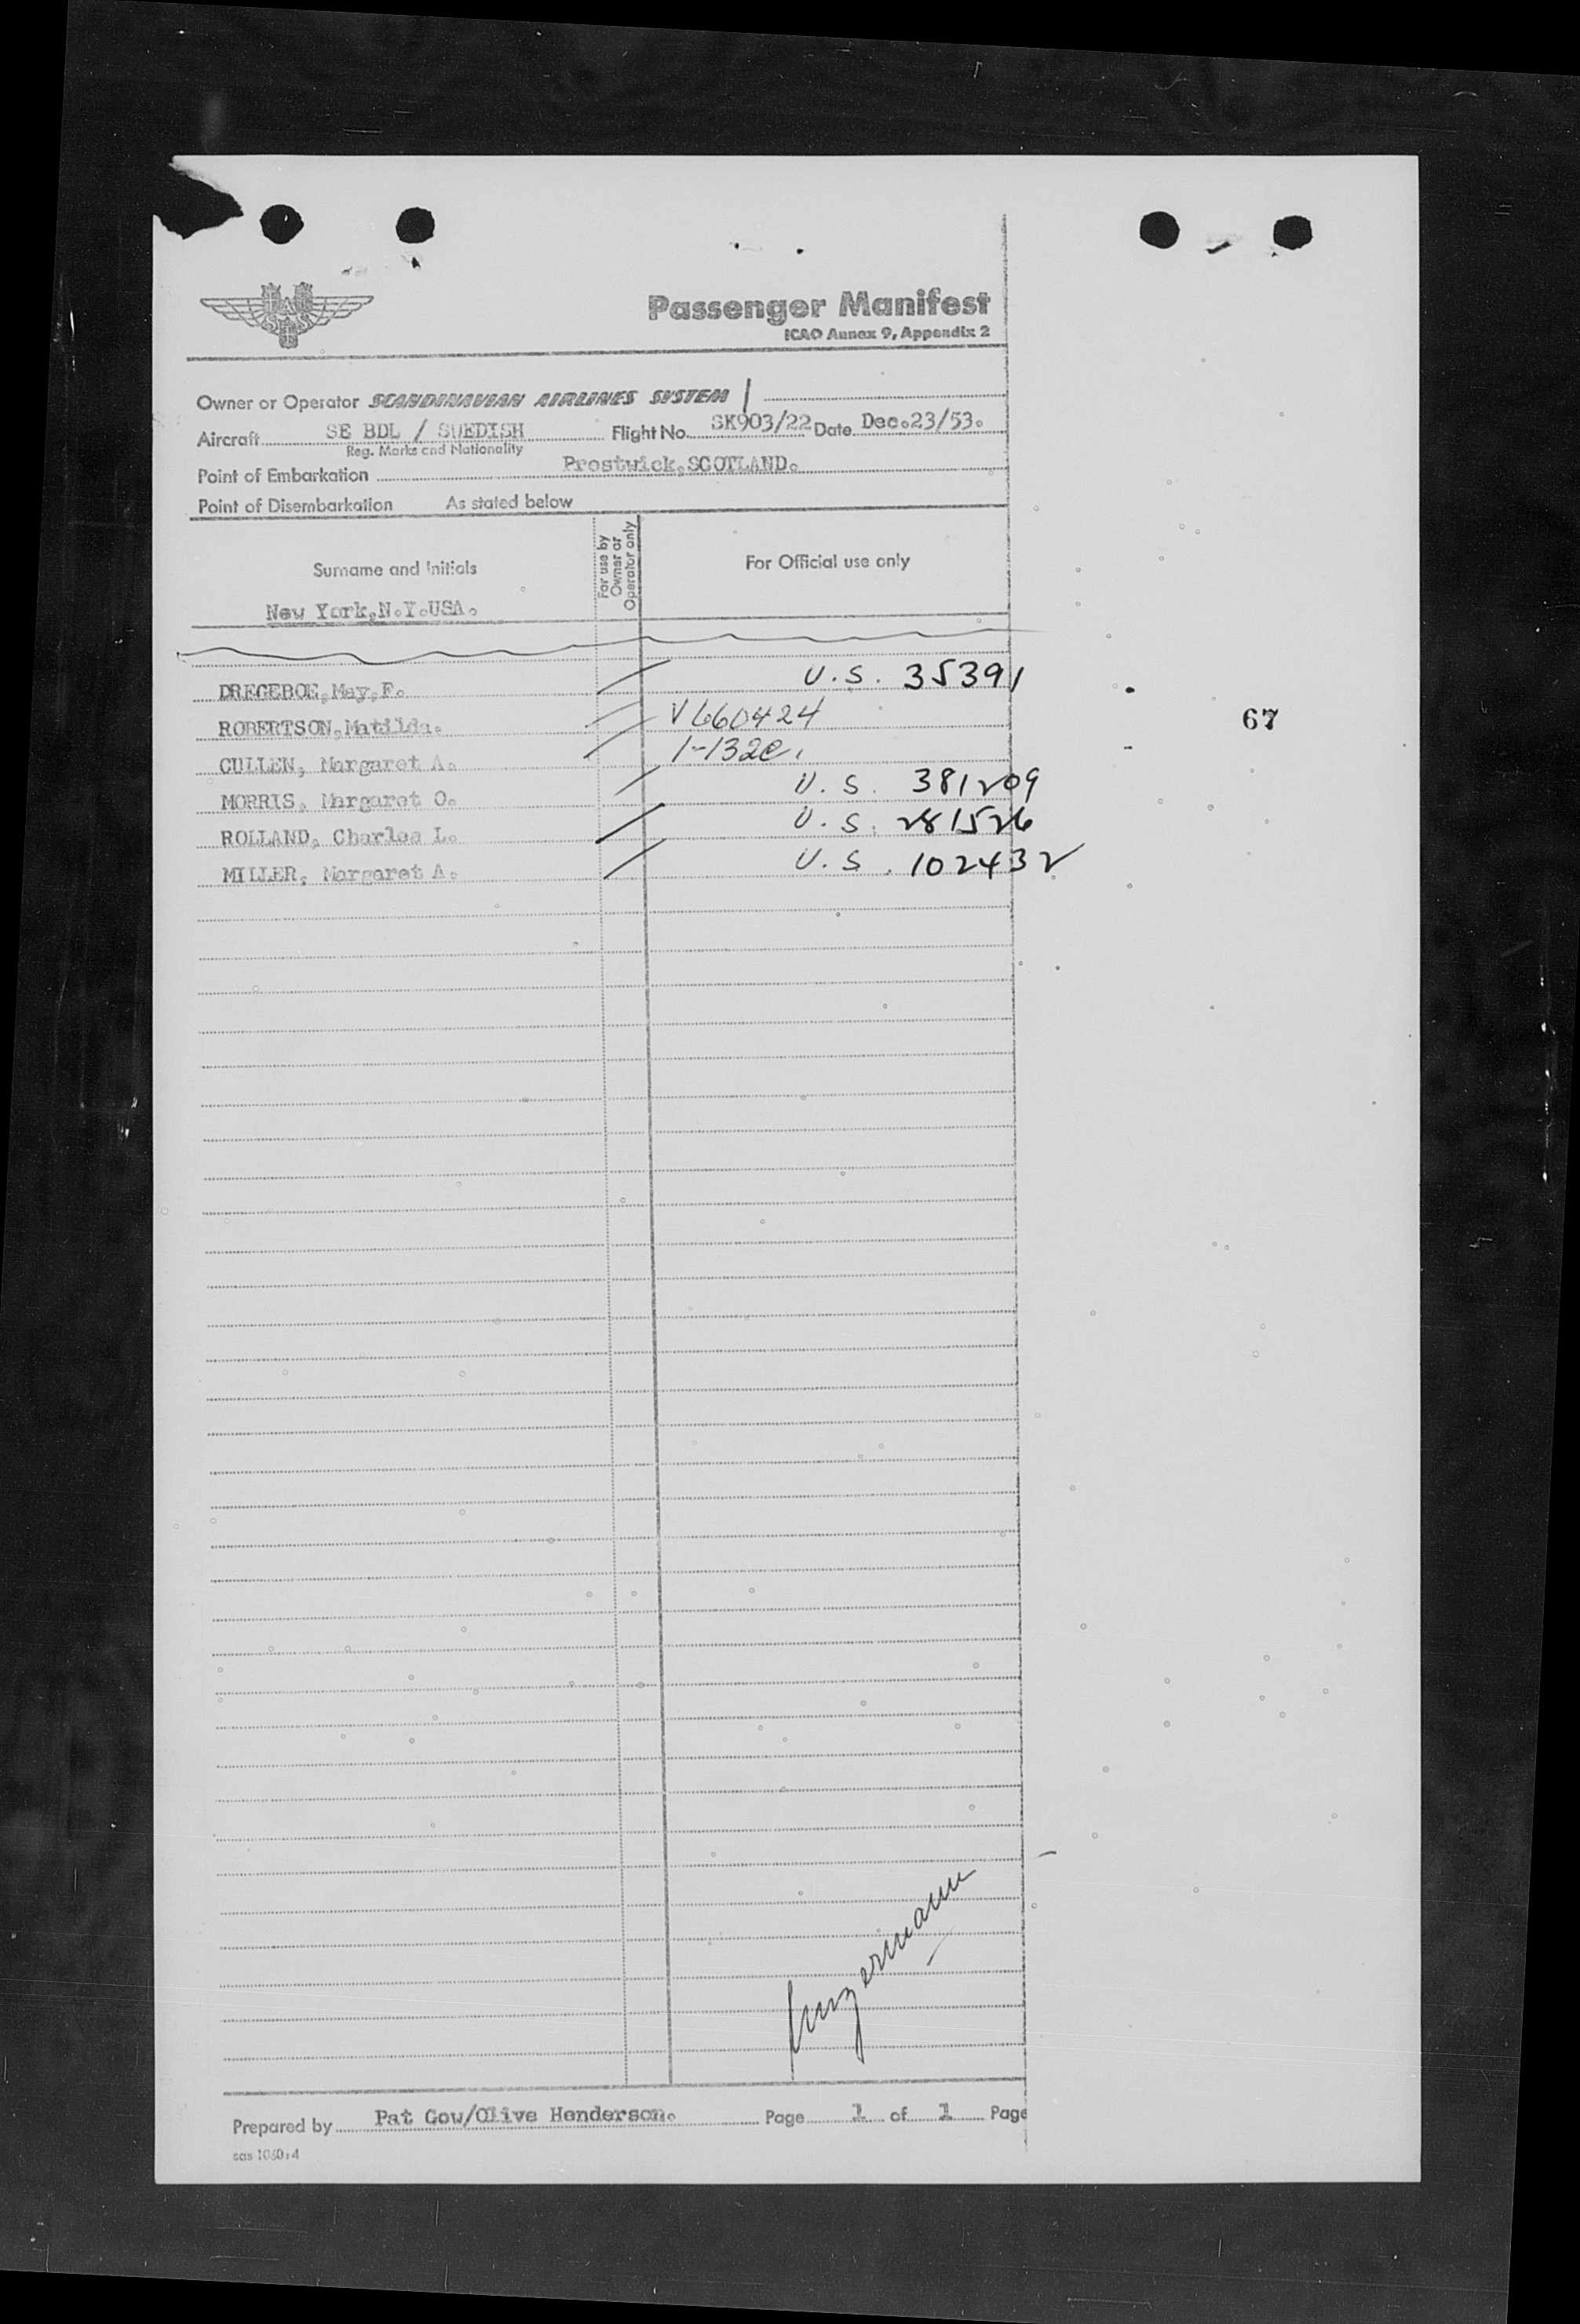 SAS
Passenger Manifest
ICAO Annex 9, Appendix 2
Owner or Operator SCANDINAVIAN AIRLINES SYSTEM
Aircraft SE BDL / SUEDISH Flight No. SK903/22 Date Dec.23/53.
Reg. Marks and Nationality
Point of Embarkation Prestwick,SCOTLAND.
Point of Disembarkation As stated below
Surname and Initials For use by Owner or Operator only For Official use only
New York,N.Y.USA.
DREGEBOE,May,F. U.S. 35391
ROBERTSON,Matilda. V660424
67
CULLEN, Margaret A. 1-132c.
MORRIS, Margaret O. U.S. 381209
ROLLAND, Charles L. U.S. 281526
MILLER, Margaret A. U.S. 102432
Prepared by Pat Gow/Olive Henderson. Page 1 of 1 Page
sas 1060:4